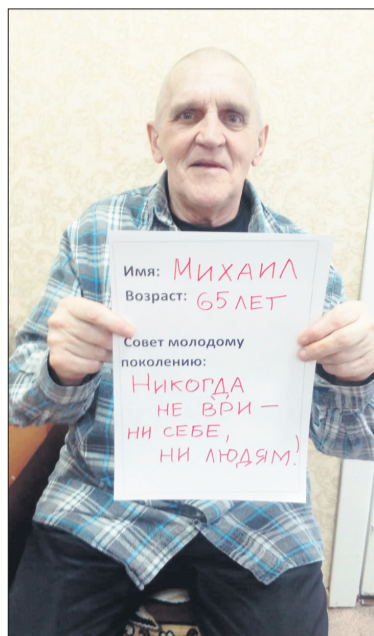 Имя: МИХАИЛ
Возраст: 65 ЛЕТ
Совет молодому
поколению:
НИКОГДА
НЕ ВРИ –
НИ СЕБЕ,
НИ ЛЮДЯМ!